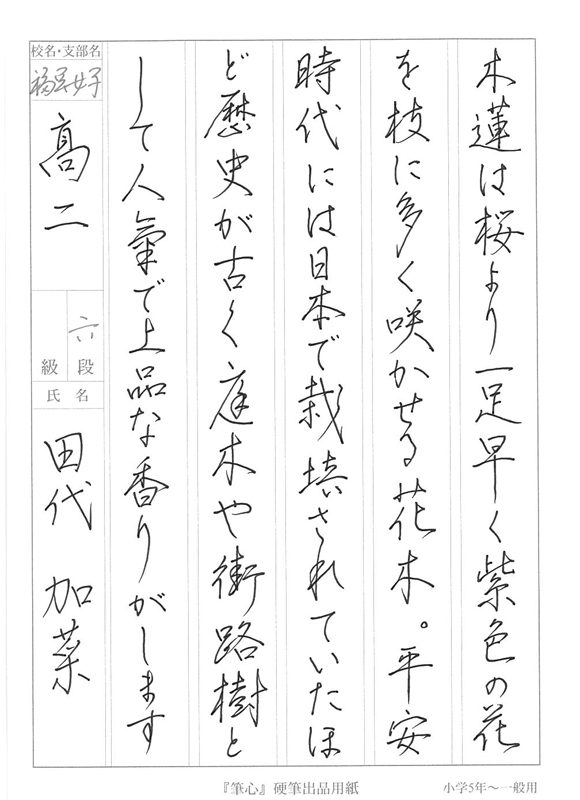 木蓮は桜より一足早く紫色の花
を枝に多く咲かせる花木。平安
時代には日本で栽培されていたほ
ど歴史が古く庭木や街路樹と
して人氣で上品な香りがします
校名・支部名
高二
六段
級
氏名
田代 加菜
『筆心』硬筆出品用紙
小学5年～一般用